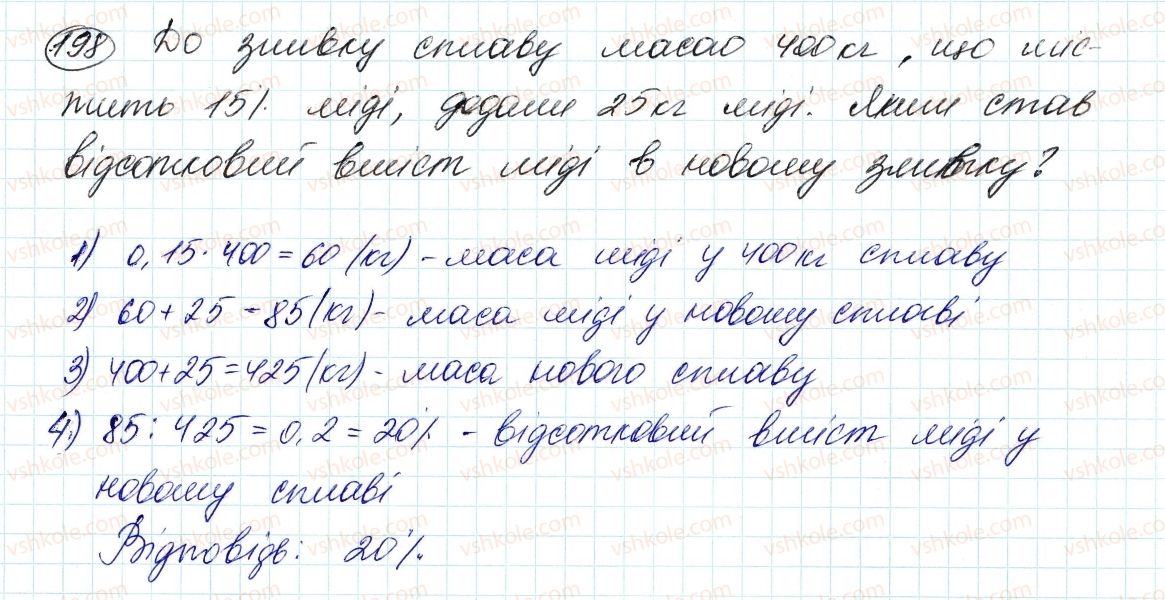 198 До зливку сплаву масою 400 кг, що міс-
тить 15% міді, додали 25 кг міді. Яким став
відсотковий вміст міді в новому зливку?
1) 0,15 · 400 = 60 (кг) - маса міді у 400 кг сплаву
2) 60 + 25 = 85 (кг) - маса міді у новому сплаві
3) 400 + 25 = 425 (кг) - маса нового сплаву
4) 85 : 425 = 0,2 = 20% - відсотковий вміст міді у
новому сплаві
Відповідь: 20%.